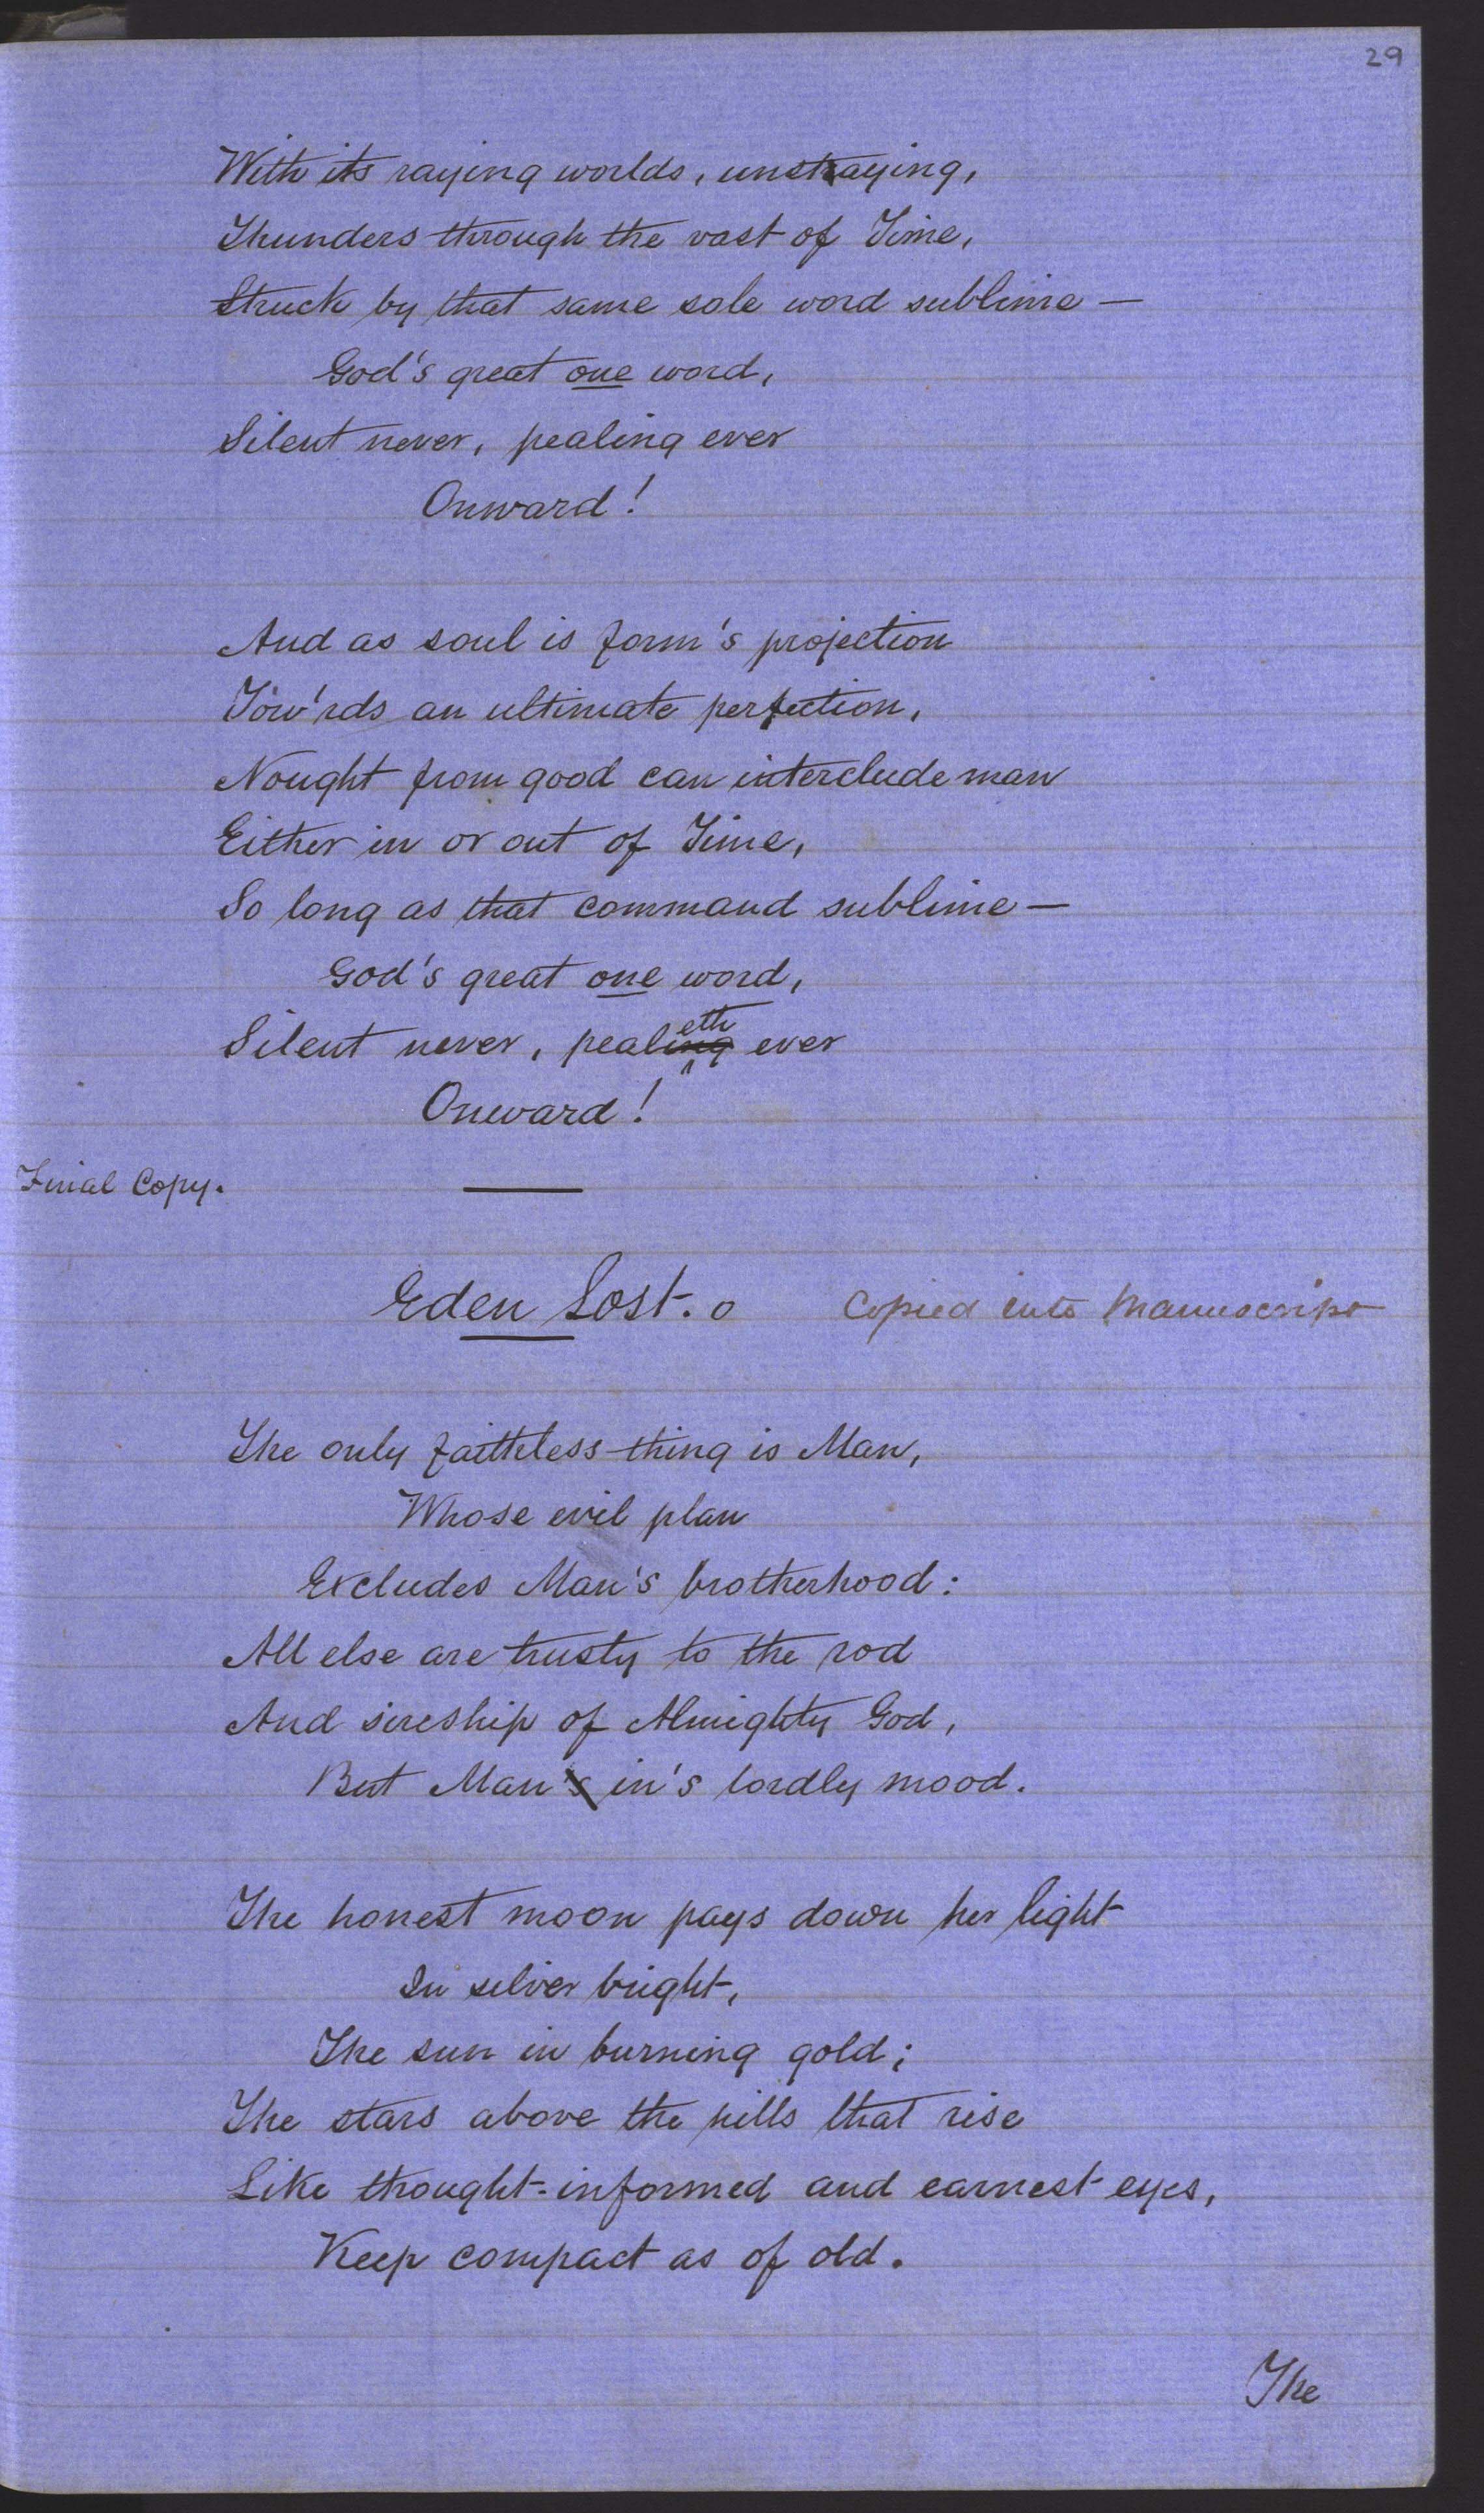 29
With its raying worlds, unstraying,
Thunders through the vast of Time,
Struck by that same sole word sublime —
God's great one word,
Silent never, pealing ever
Onward!
And as soul is form's projection
Tow'rds an ultimate perfection,
Nought from good can interclude man
Either in or out of Time,
So long as that command sublime —
God's great one word,
Silent never, pealing eth ever
Onward!
Final Copy.
Eden Lost. o Copied into Manuscript
The only faithless thing is Man,
Whose evil plan
Excludes Man's brotherhood:
All else are trusty to the rod
And sireship of Almighty God,
But Man's in's lordly mood.
The honest moon pays down her light
In silver bright,
The sun in burning gold;
The stars above the hills that rise
Like thought-informed and earnest eyes,
Keep compact as of old.
The